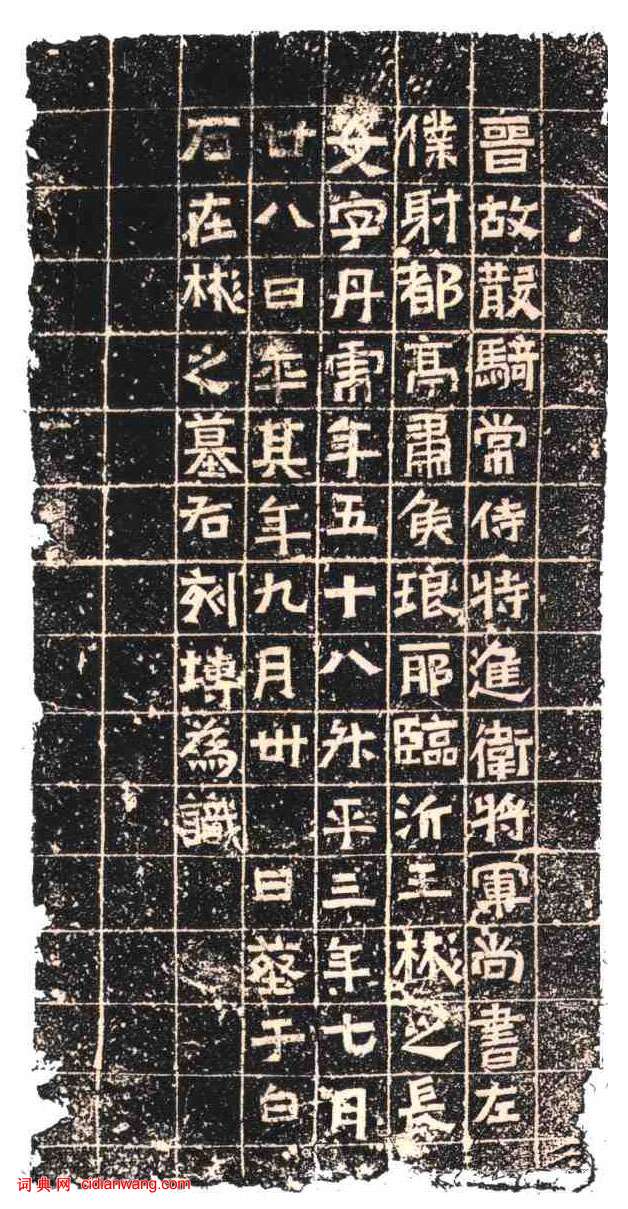 晉故散騎常侍特進衛將軍尚書左
僕射都亭肅侯琅耶臨沂王彬之長
女字丹虎年五十八升平三年七月
廿八日卒其年九月卅日葬于白
石在彬之墓右刻塼為識
词典网 cidianwang.com